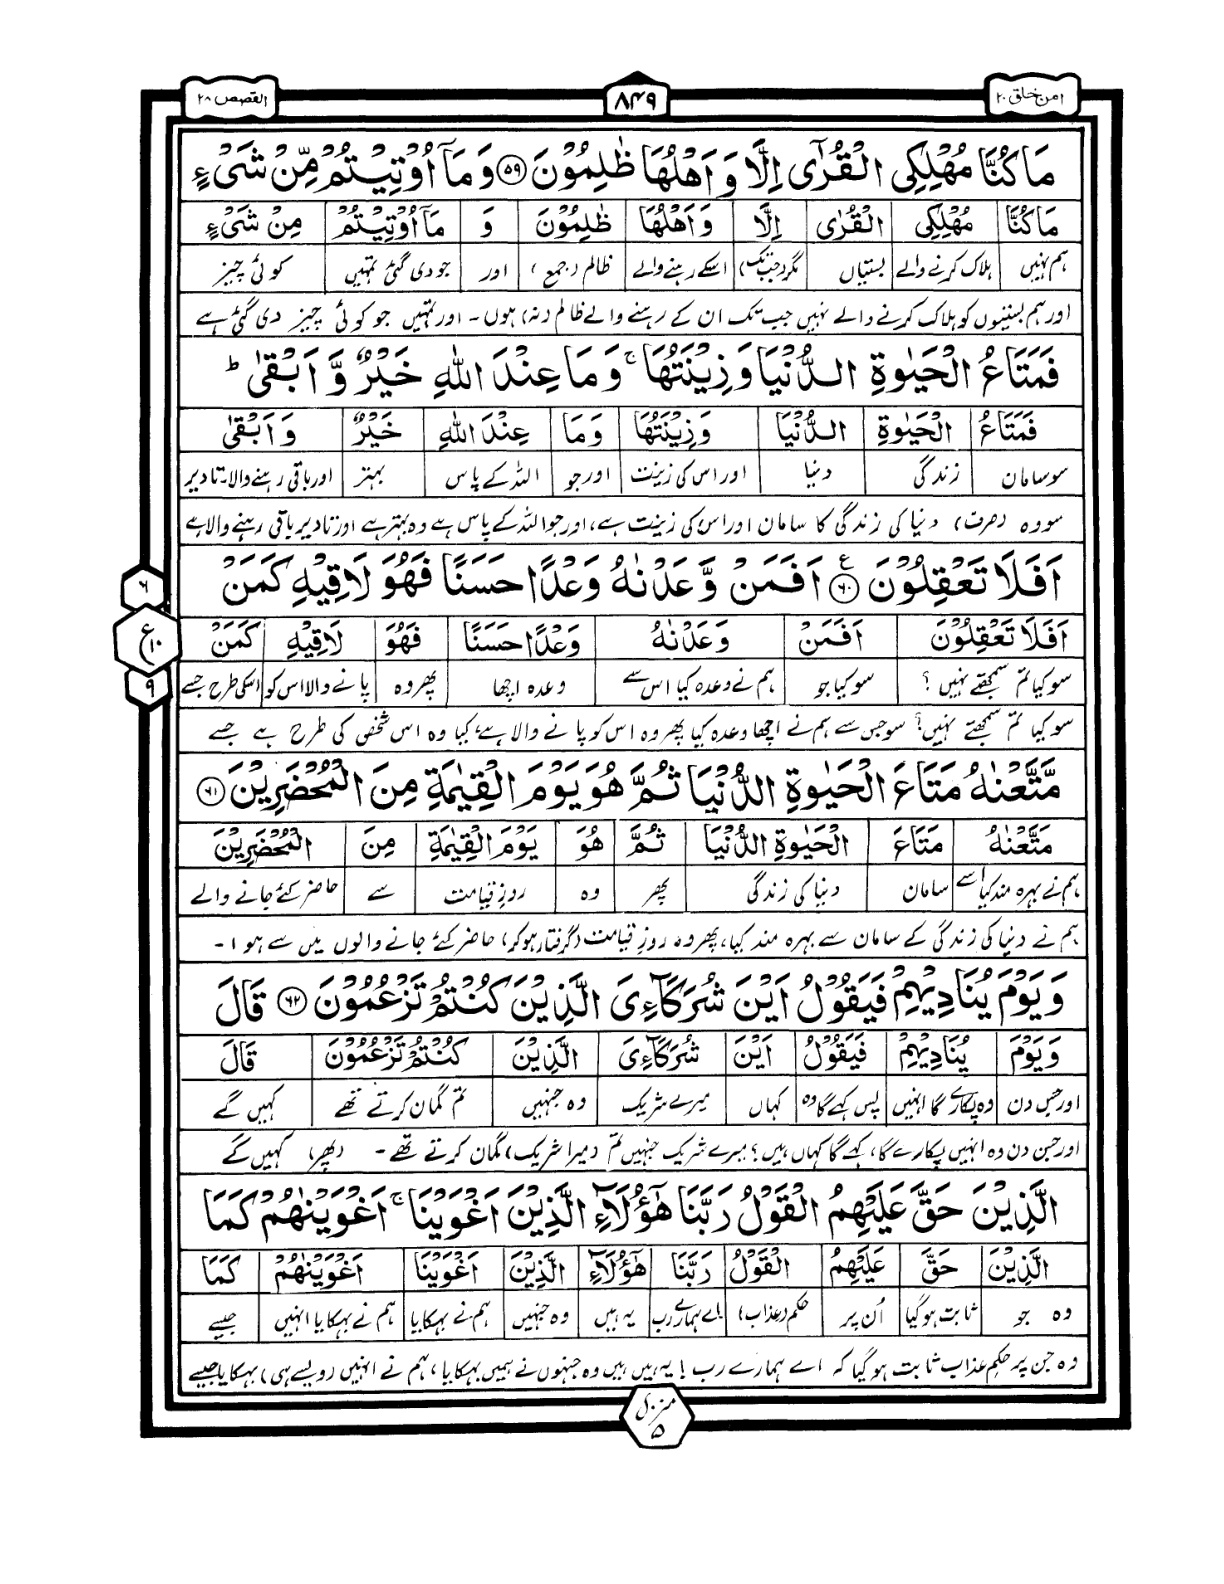 امن خلق ۲۰
۸۴۹
القصص ۲۸
مَا كُنَّا مُهْلِكِی الْقُرٰۤی اِلَّا وَ اَهْلُهَا ظٰلِمُوْنَ ۵۹ وَ مَاۤ اُوْتِیْتُمْ مِّنْ شَیْءٍ
مَا كُنَّا مُهْلِكِی الْقُرٰی اِلَّا وَ اَهْلُهَا ظٰلِمُوْنَ وَ مَاۤ اُوْتِیْتُمْ مِنْ شَیْءٍ
ہم نہیں ہلاک کرنے والے بستیاں مگر (جب تک) اسکے رہنے والے ظالم (جمع) اور جو دی گئی تمہیں کوئی چیز
اور ہم بستیوں کو ہلاک کرنے والے نہیں جب تک ان کے رہنے والے ظالم (نہ) ہوں ۔ اور تمہیں جو کوئی چیز دی گئی ہے
فَمَتَاعُ الْحَیٰوةِ الدُّنْیَا وَ زِیْنَتُهَا ۚ وَ مَا عِنْدَ اللّٰهِ خَیْرٌ وَّ اَبْقٰی ؕ
فَمَتَاعُ الْحَیٰوةِ الدُّنْیَا وَ زِیْنَتُهَا وَ مَا عِنْدَ اللّٰهِ خَیْرٌ وَ اَبْقٰی
سو سامان زندگی دنیا اور اس کی زینت اور جو اللہ کے پاس بہتر اور باقی رہنے والا۔ تادیر
سو وہ (صرف) دنیا کی زندگی کا سامان اور اس کی زینت ہے، اور جو اللہ کے پاس ہے وہ بہتر ہے اور تادیر باقی رہنے والا ہے
اَفَلَا تَعْقِلُوْنَ ع ۶۰ اَفَمَنْ وَّعَدْنٰهُ وَعْدًا حَسَنًا فَهُوَ لَاقِیْهِ كَمَنْ
۶
ع ۱۰
۹
اَفَلَا تَعْقِلُوْنَ اَفَمَنْ وَعَدْنٰهُ وَعْدًا حَسَنًا فَهُوَ لَاقِیْهِ كَمَنْ
سو کیا تم سمجھتے نہیں ؟ سو کیا جو ہم نے وعدہ کیا اس سے وعدہ اچھا پھر وہ پانے والا اس کو اسکی طرح جسے
سو کیا تم سمجھتے نہیں؟ سو جس سے ہم نے اچھا وعدہ کیا پھر وہ اس کو پانے والا ہے، کیا وہ اس شخص کی طرح ہے جسے
مَّتَّعْنٰهُ مَتَاعَ الْحَیٰوةِ الدُّنْیَا ثُمَّ هُوَ یَوْمَ الْقِیٰمَةِ مِنَ الْمُحْضَرِیْنَ ۶۱
مَتَّعْنٰهُ مَتَاعَ الْحَیٰوةِ الدُّنْیَا ثُمَّ هُوَ یَوْمَ الْقِیٰمَةِ مِنَ الْمُحْضَرِیْنَ
ہم نے بہرہ مند کیا اسے سامان دنیا کی زندگی پھر وہ روزِ قیامت سے حاضر کئے جانے والے
ہم نے دنیا کی زندگی کے سامان سے بہرہ مند کیا، پھر وہ روزِ قیامت (گرفتار ہو کر) حاضر کئے جانے والوں میں سے ہوا ۔
وَ یَوْمَ یُنَادِیْهِمْ فَیَقُوْلُ اَیْنَ شُرَكَآءِیَ الَّذِیْنَ كُنْتُمْ تَزْعُمُوْنَ ۶۲ قَالَ
وَ یَوْمَ یُنَادِیْهِمْ فَیَقُوْلُ اَیْنَ شُرَكَآءِیَ الَّذِیْنَ كُنْتُمْ تَزْعُمُوْنَ قَالَ
اور جس دن وہ پکارے گا انہیں پس کہے گا وہ کہاں میرے شریک وہ جنہیں تم گمان کرتے تھے کہیں گے
اور جس دن وہ انہیں پکارے گا، کہے گا کہاں ہیں؟ میرے شریک جنہیں تم (میرا شریک) گمان کرتے تھے ۔ (پھر) کہیں گے
الَّذِیْنَ حَقَّ عَلَیْهِمُ الْقَوْلُ رَبَّنَا هٰۤؤُلَآءِ الَّذِیْنَ اَغْوَیْنَا ۚ اَغْوَیْنٰهُمْ كَمَا
الَّذِیْنَ حَقَّ عَلَیْهِمُ الْقَوْلُ رَبَّنَا هٰۤؤُلَآءِ الَّذِیْنَ اَغْوَیْنَا اَغْوَیْنٰهُمْ كَمَا
وہ جو ثابت ہو گیا اُن پر حکم (عذاب) اے ہمارے رب یہ ہیں وہ جنہیں ہم نے بہکایا ہم نے بہکایا انہیں جیسے
وہ جن پر حکمِ عذاب ثابت ہو گیا کہ اے ہمارے رب ! یہ ہیں وہ جنہوں نے ہمیں بہکایا، ہم نے انہیں (ویسے ہی) بہکایا جیسے
منزل ۵